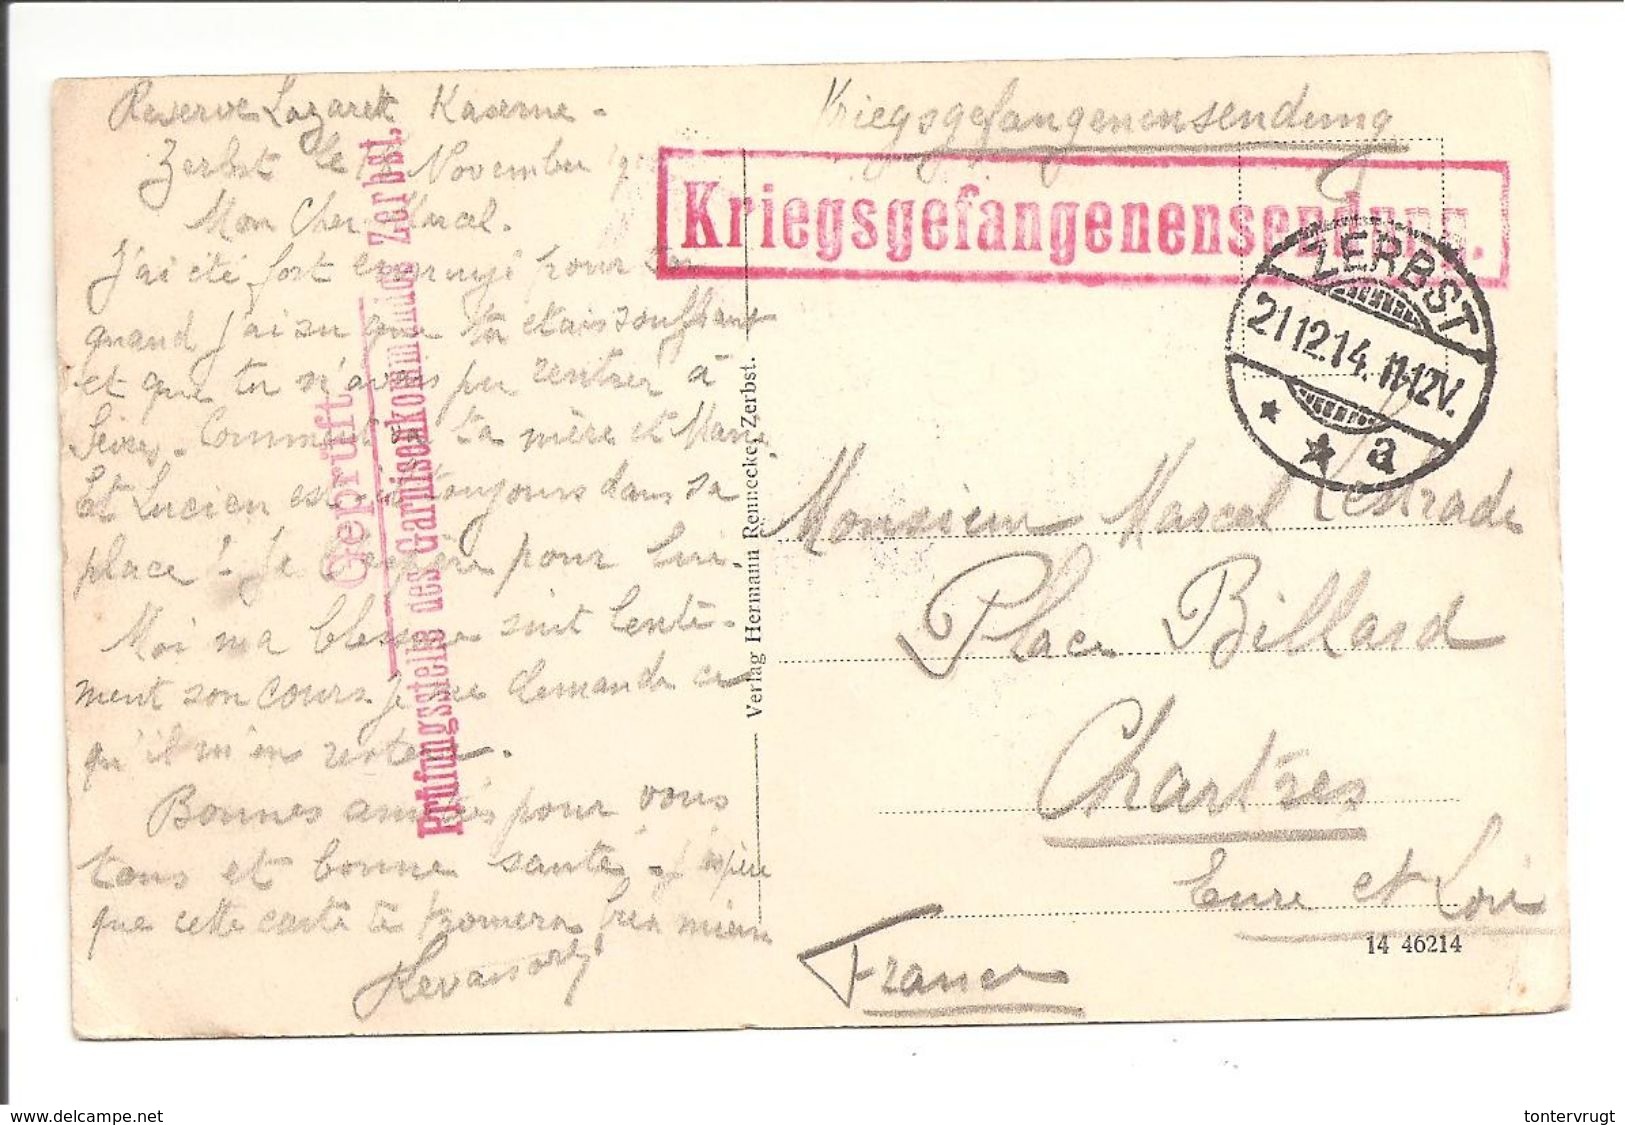 Reserve Lazarett Kaserne -
Zerbst le Novembre
Mon Cher Marcel.
J'ai été fort ennuyé pour toi
quand j'ai su que tu etais souffrant
et que tu n'avais pu rentrer à
Sèvres. Comment va ta mère et Marie.
Et Lucien est-il toujours dans sa
place ! Je l'espère pour lui.
Moi ma blessure suit lente-
ment son cours. Je me demande ce
qu'il m'en restera.
Bonnes amitiés pour vous
tous et bonne santé, - J'espère
que cette carte te trouvera bien mieux
Levassort
Geprüft
Prüfungsstelle des Garnisonkommandos Zerbst.
Verlag Hermann Rennecke, Zerbst.
Kriegsgefangenensendung
Kriegsgefangenensendung.
ZERBST
21.12.14. 11-12V.
* * a
Monsieur Marcel Lestrade
Place Billard
Chartres
Eure et Loir
France
14 46214
delcampe.net
tontervrugt